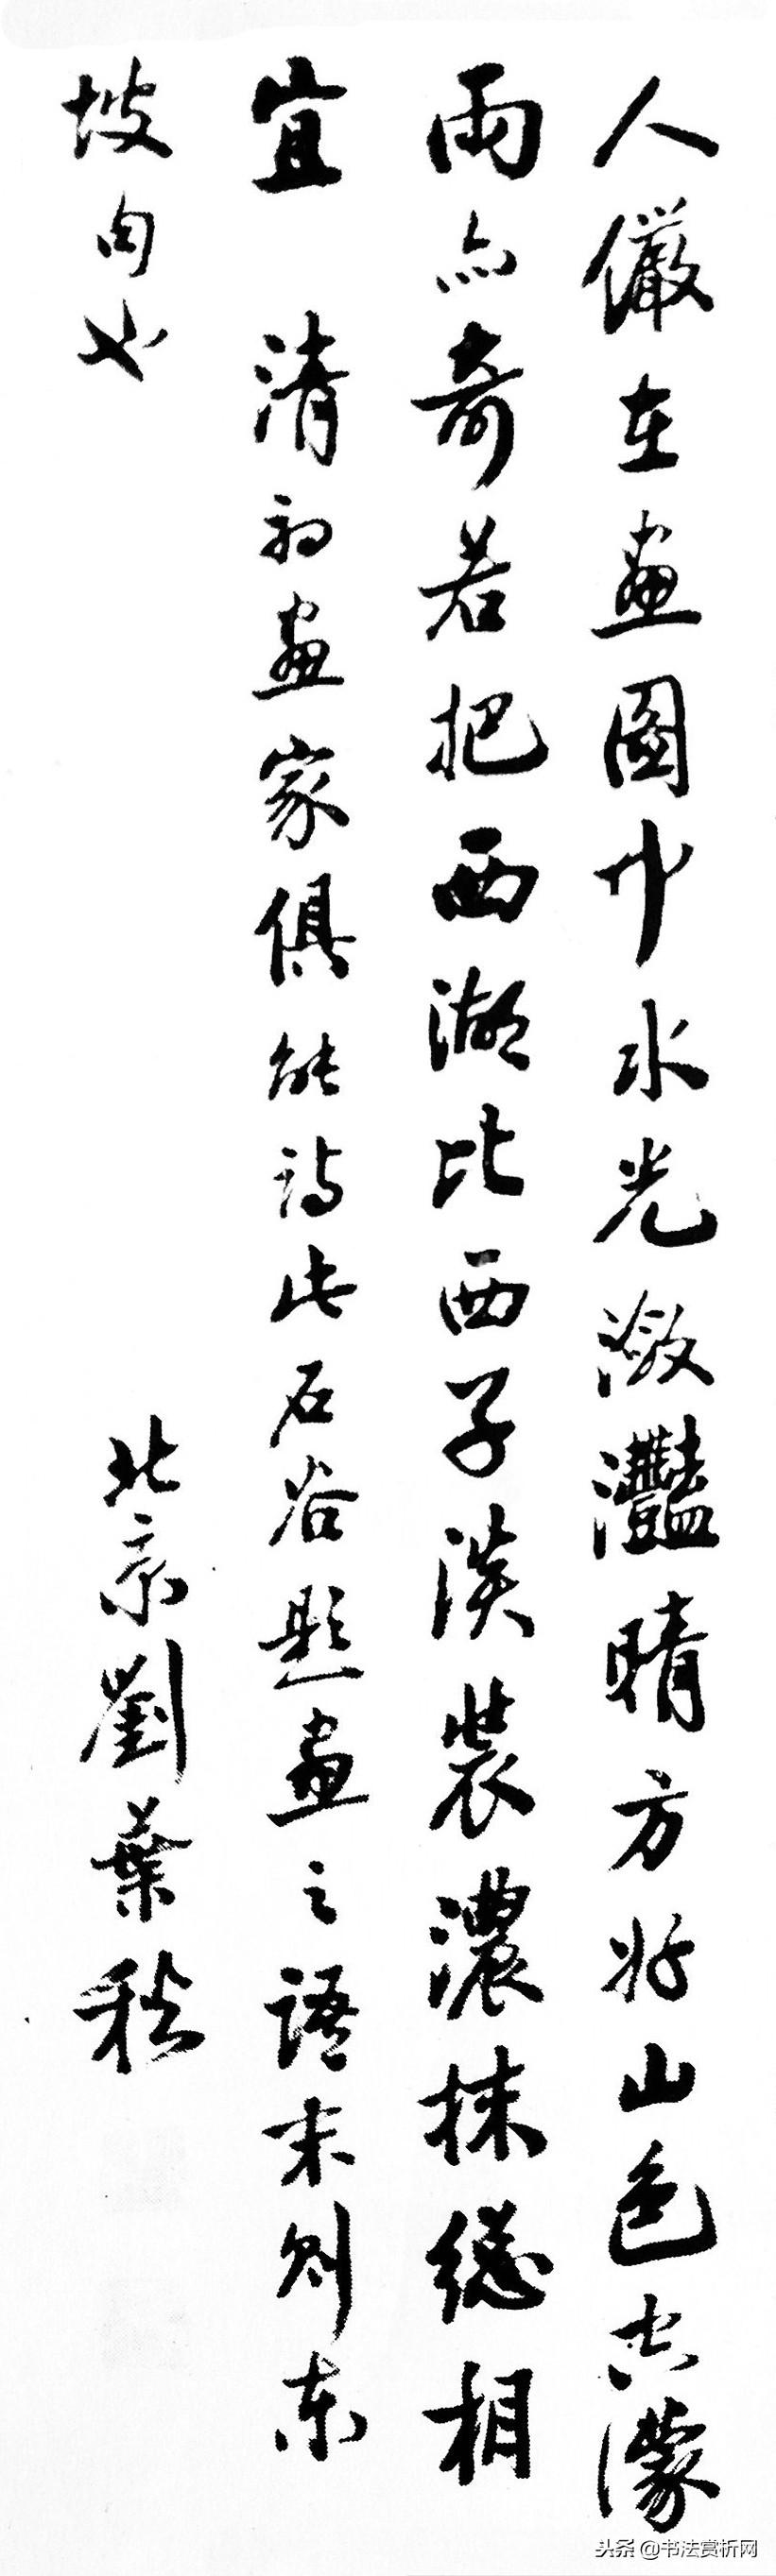 人儼在畫圖中水光瀲灩晴方好山色空濛
雨亦奇若把西湖比西子淡裝濃抹總相
宜 清初畫家俱能詩此石谷題畫之語末則東
坡句也
北京劉葉秋
头条 @书法赏析网